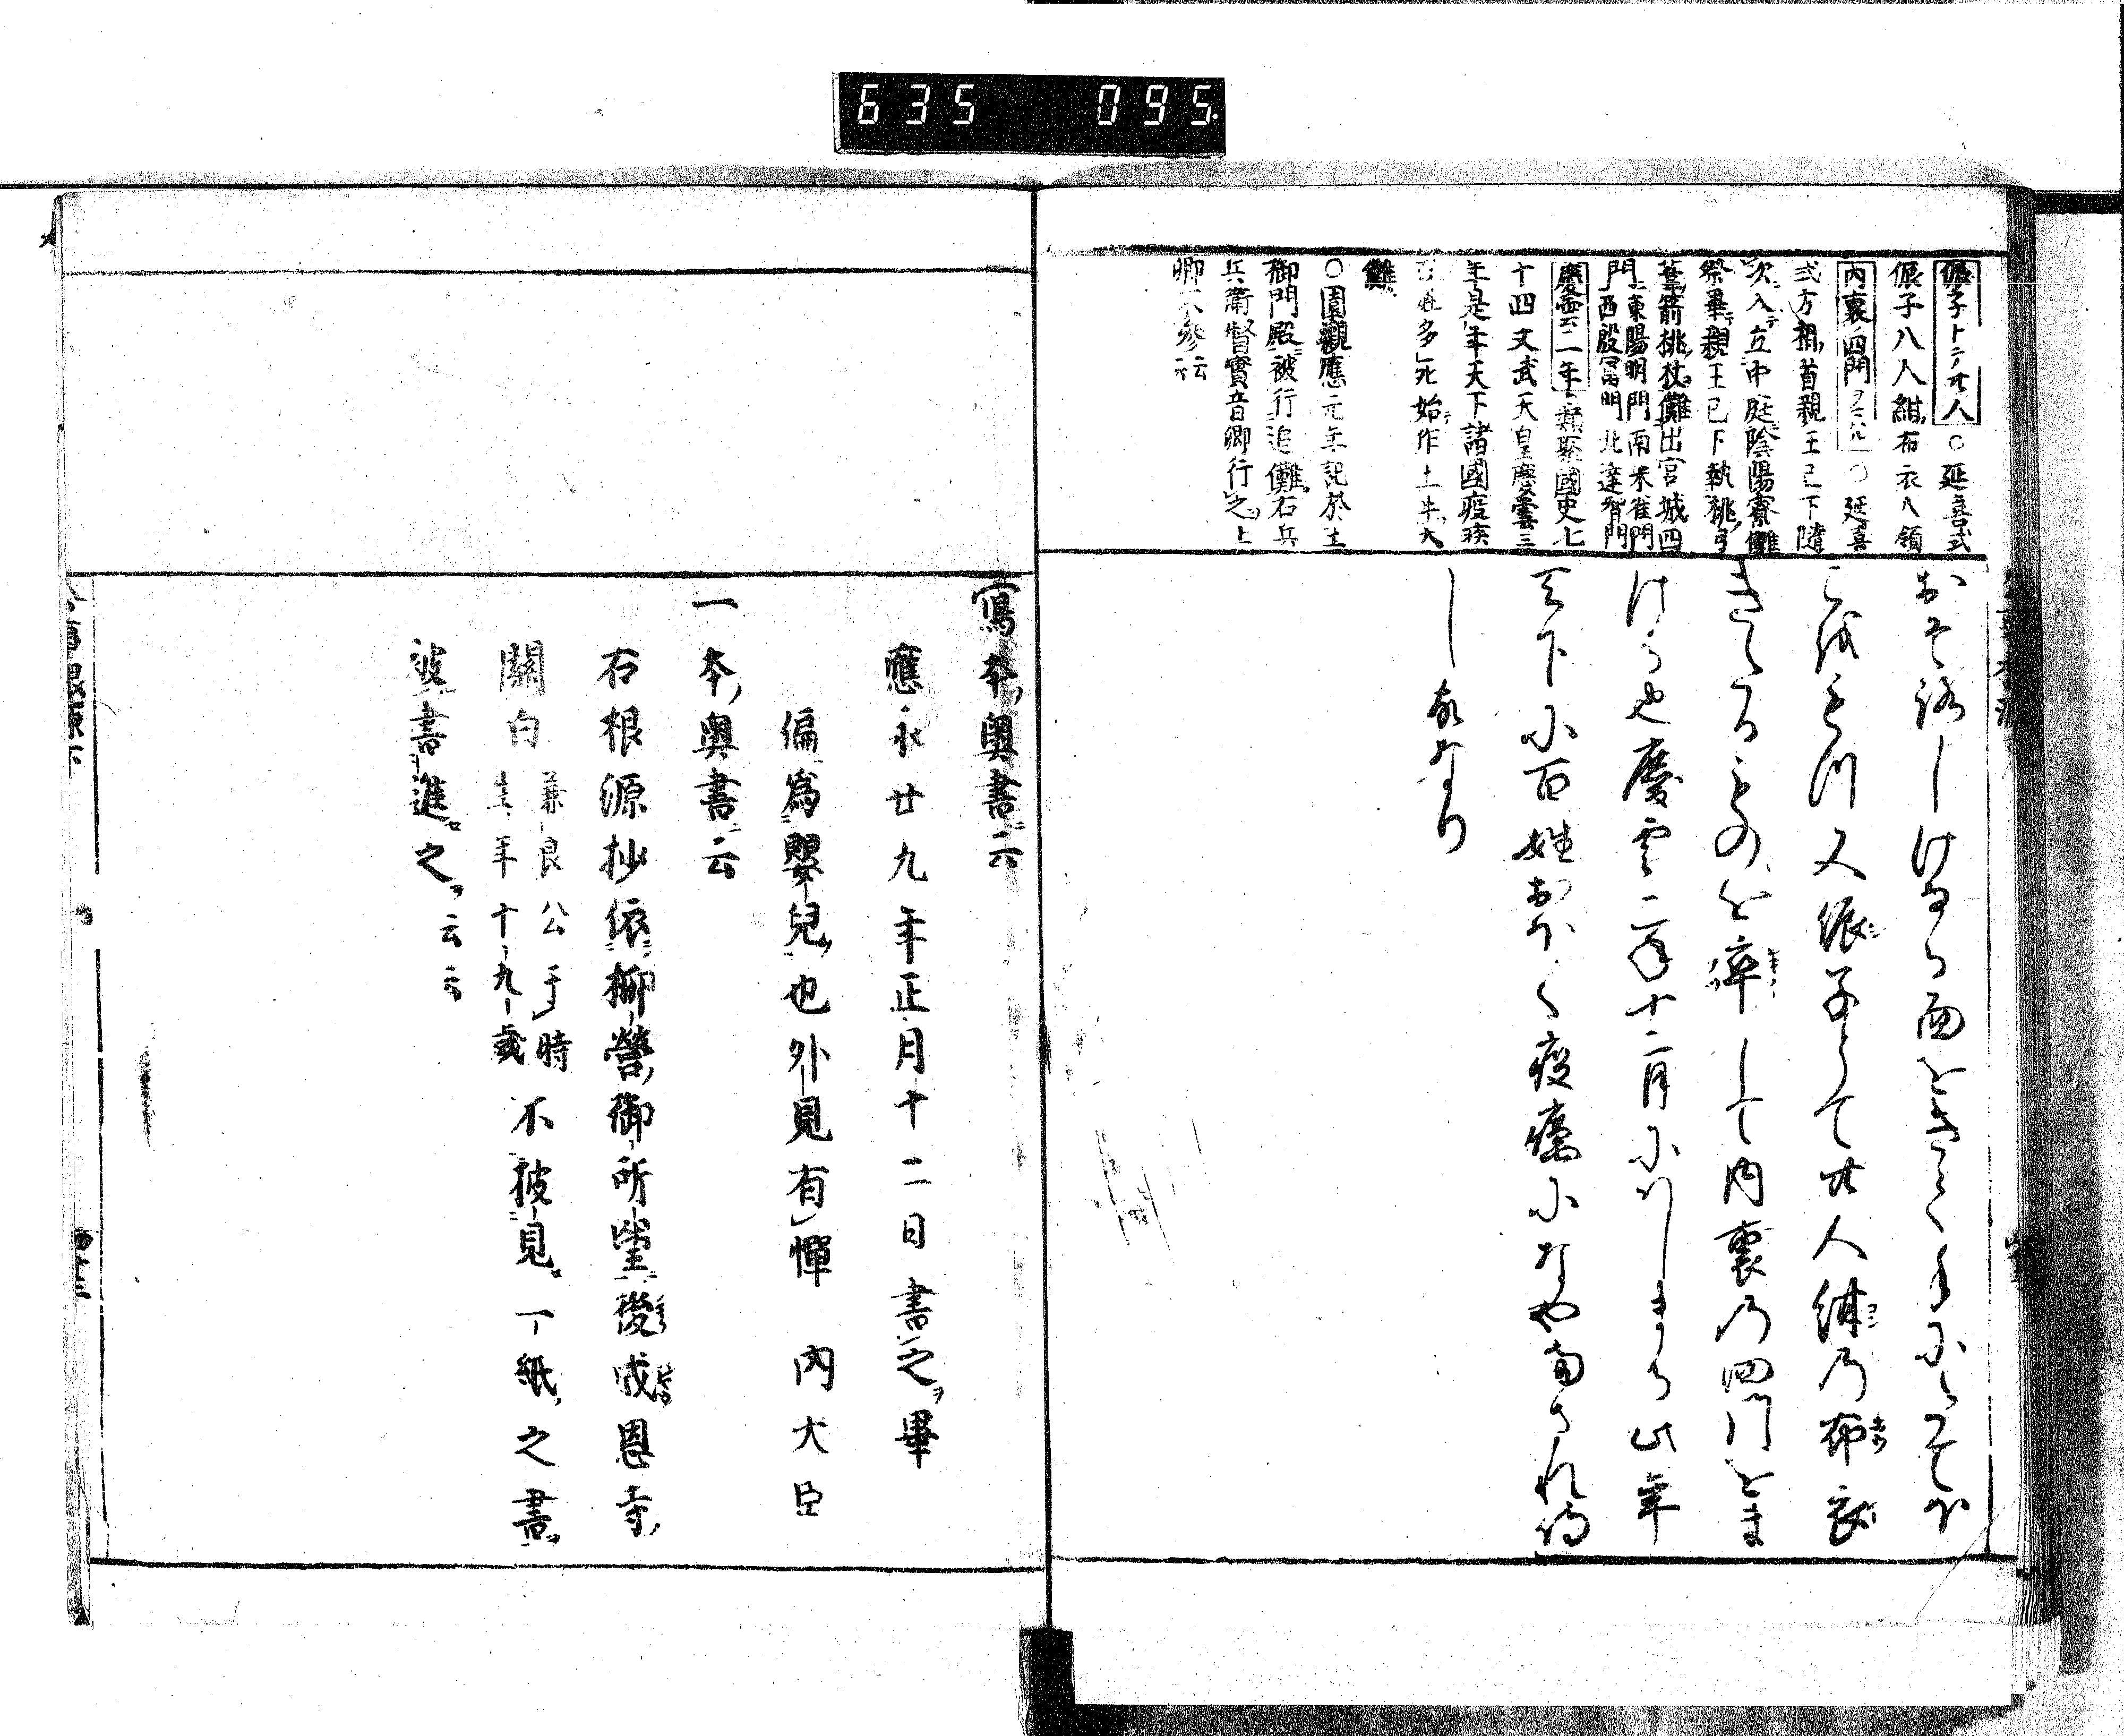 635 095
侲子トテ廿人 ○延喜式
侲子八人紺布衣八領
内裏ノ四門 ○延喜
式方相首親王已下隨
次入立中庭陰陽寮儺
祭畢親王已下執桃弓
葦箭桃杖儺出宮城四
門東陽明門南朱雀門
西殷冨明北達智門
慶雲二年 類聚國史七
十四文武天皇慶雲三
年是年天下諸國疫疾
百姓多死始作土牛大
儺
○園觀應元年記於土
御門殿被行追儺右兵
兵衛督實音卿行之上
卿不參云云
おそろしけなる面をきて手にたてほ
こをもつ又侲子とて廿人紺の布衣
きたるものを率して内裏の四門をま
はる也慶雲二年十二月にはしまる此年
天下に百姓おほく疫癘になやまされ侍
し故なり
寫本奥書云
應永廿九年正月十二日書之畢
偏爲嬰兒也外見有憚 内大臣
一本奥書云
右根源抄依柳營御所望後成恩寺
關白 兼良公于時 生年十九歳 不披見一紙之書
被書進之云云
公事根源下